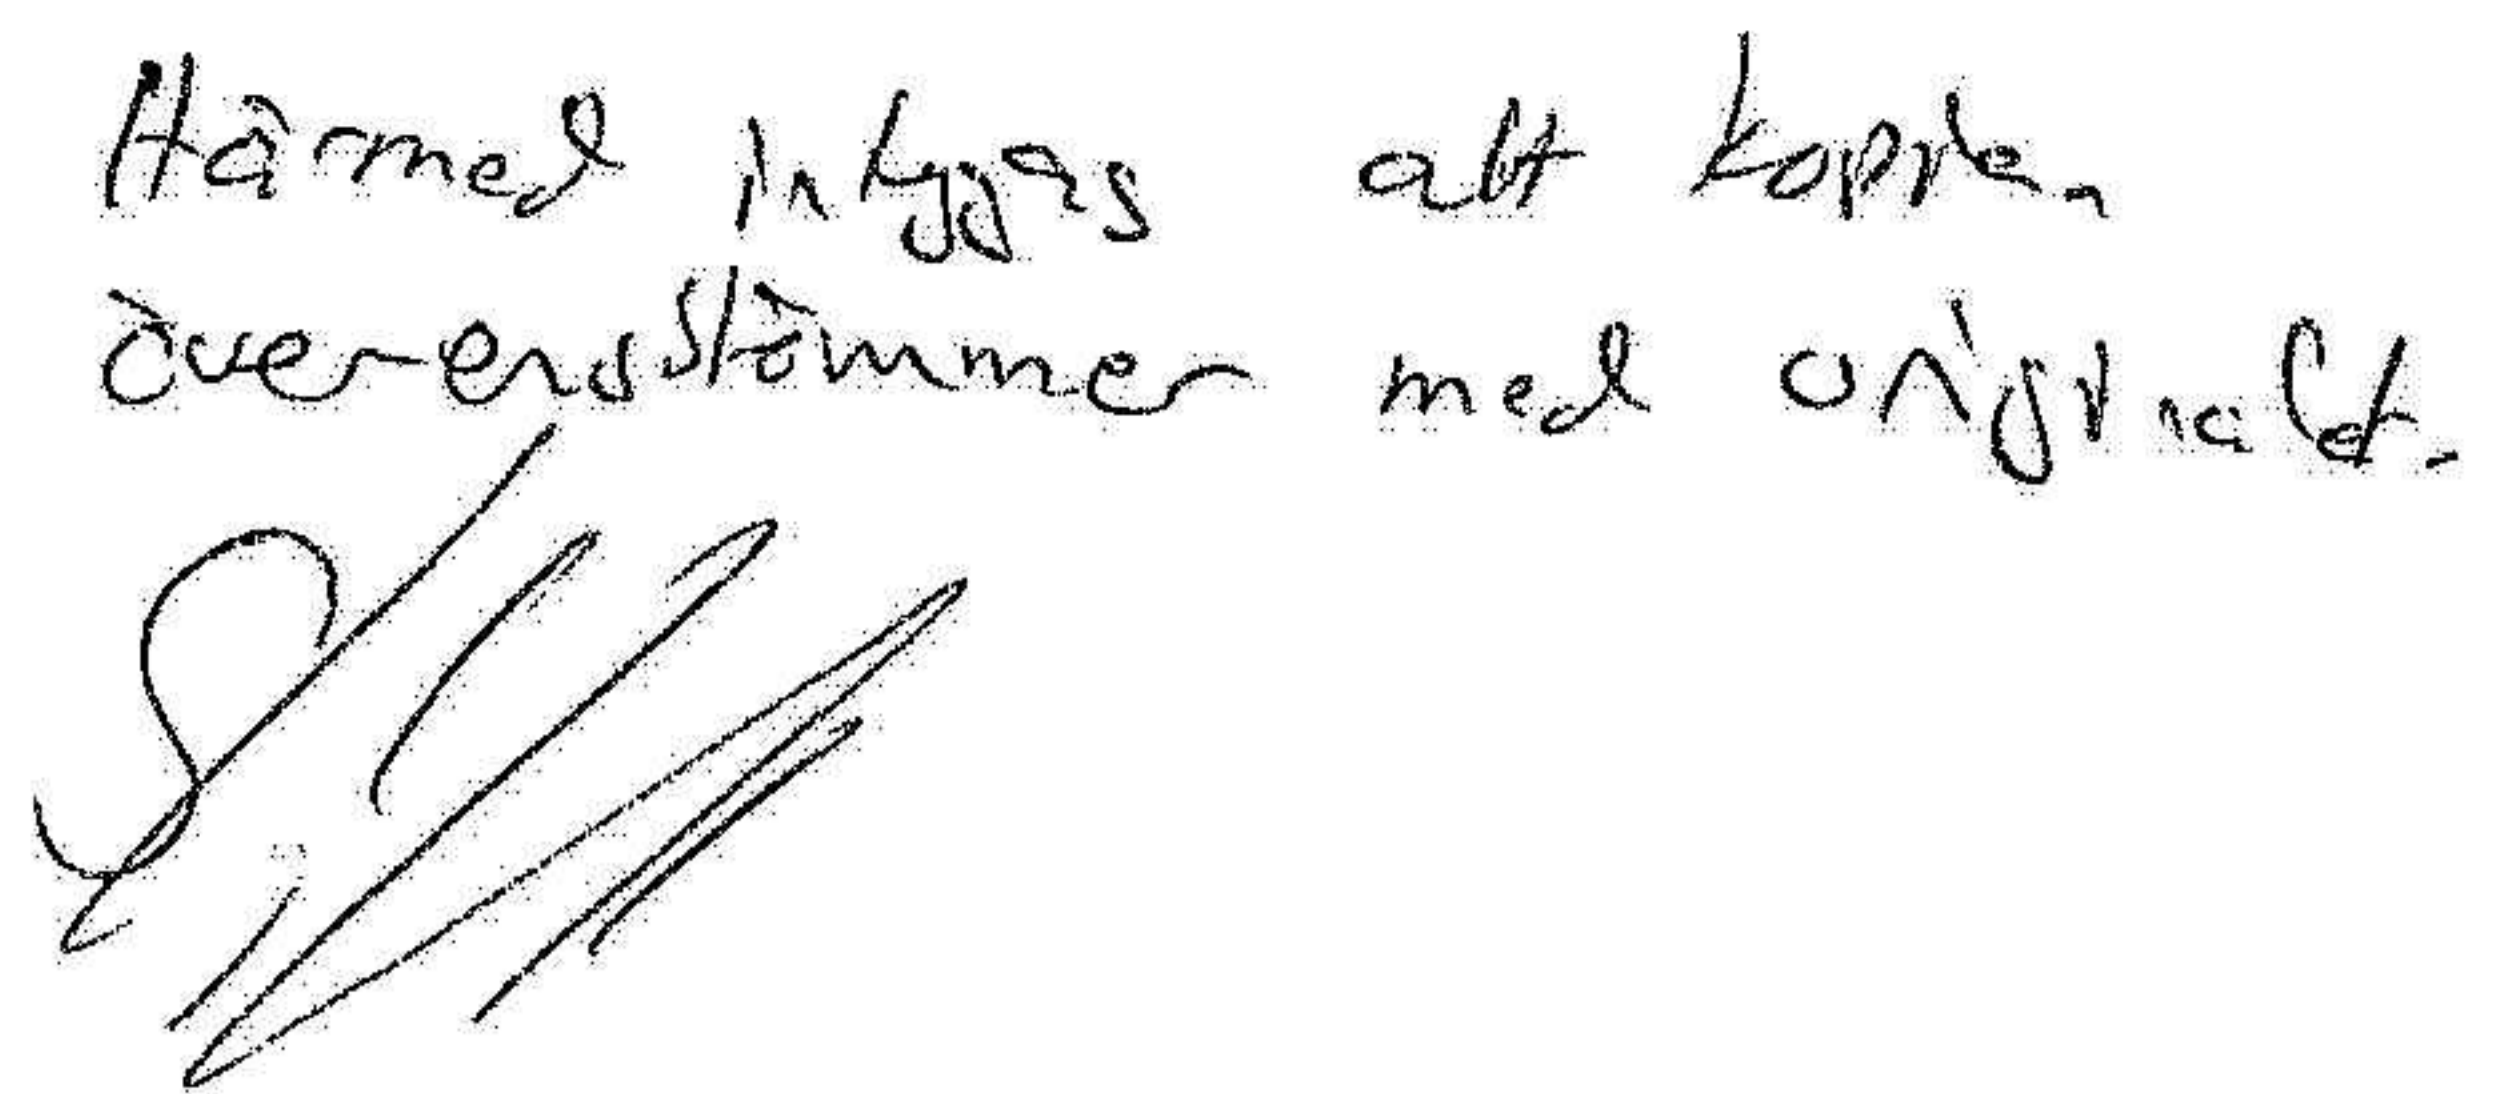 Härmed intygas att kopien
överensstämmer med originalet.